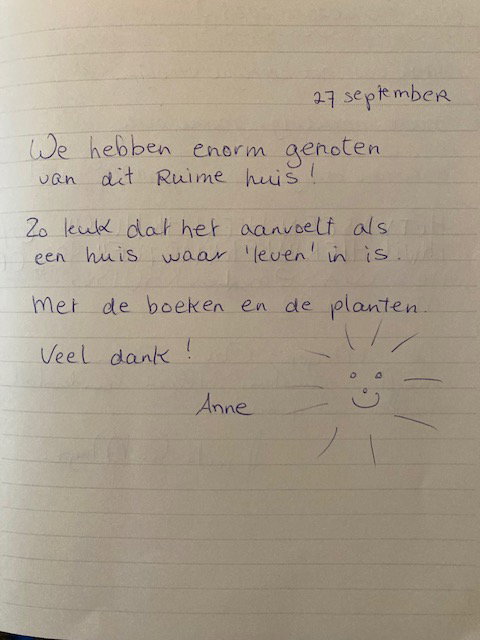 27 september
We hebben enorm genoten
van dit Ruime huis!
Zo leuk dat het aanvoelt als
een huis waar 'leven' in is.
Met de boeken en de planten.
Veel dank!
Anne